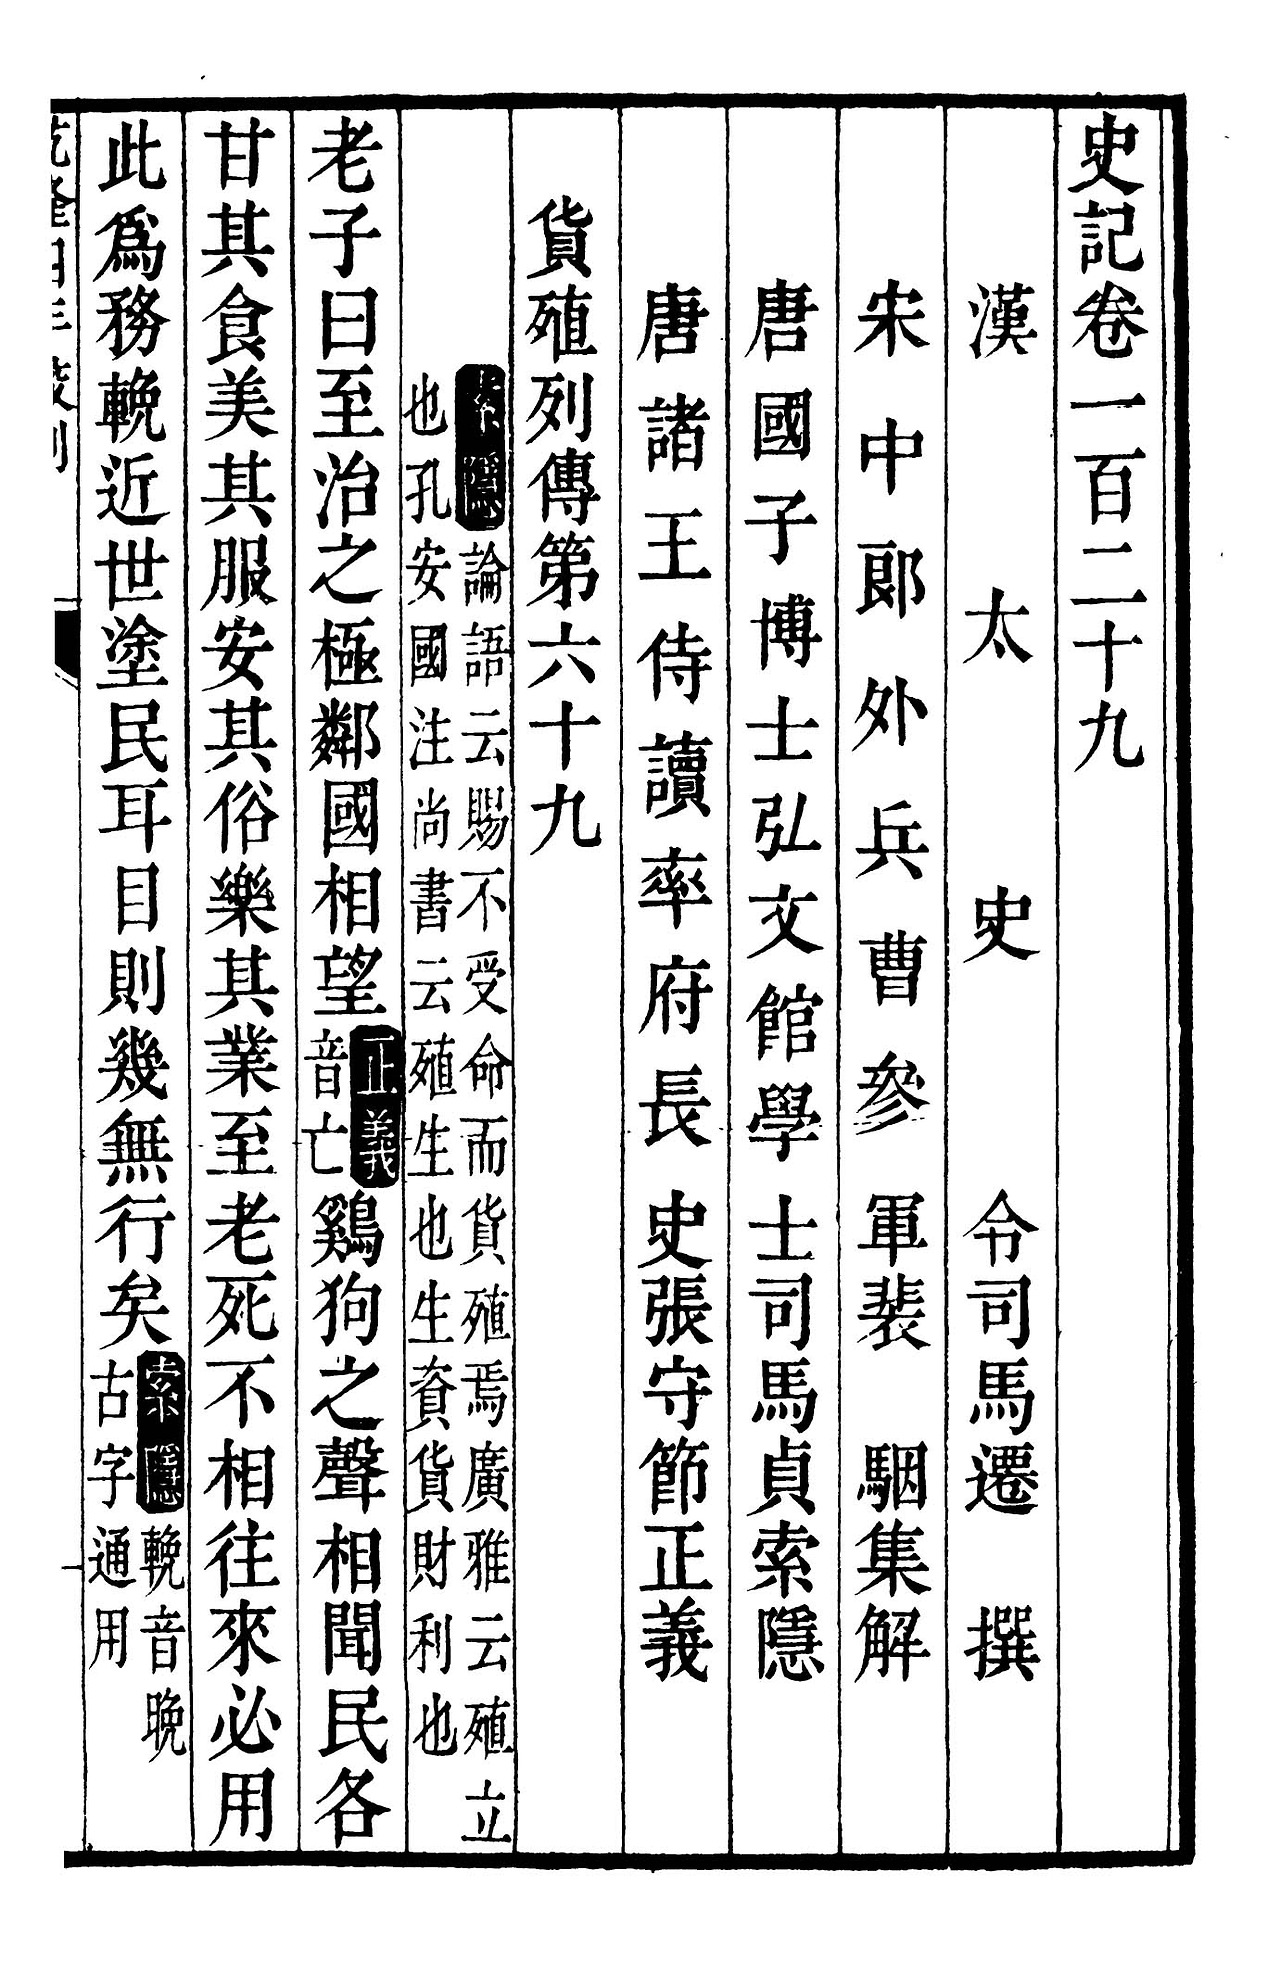 史記卷一百二十九
漢太史令司馬遷撰
宋中郎外兵曹參軍裴駰集解
唐國子博士弘文館學士司馬貞索隱
唐諸王侍讀率府長史張守節正義
貨殖列傳第六十九
索隱論語云賜不受命而貨殖焉廣雅云殖立
也孔安國注尚書云殖生也生資貨財利也
老子曰至治之極鄰國相望正義音亡鷄狗之聲相聞民各
甘其食美其服安其俗樂其業至老死不相往來必用
此爲務輓近世塗民耳目則幾無行矣索隱輓音晚古字通用
乾隆四年校刊